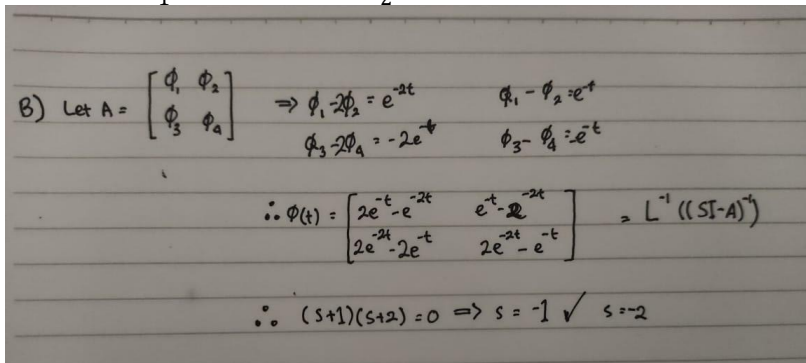 B) Let A = [ϕ₁ ϕ₂ ; ϕ₃ ϕ₄] ⇒ ϕ₁-2ϕ₂ = e^{-2t} ϕ₁ - ϕ₂ = e^{-t}
ϕ₃-2ϕ₄ = -2e^{-t} ϕ₃- ϕ₄ = -e^{-t}
∴ ϕ(t) = [2e^{-t}-e^{-2t} e^{-t}-e^{-2t} ; 2e^{-2t}-2e^{-t} 2e^{-2t}-e^{-t}] = L^{-1}((SI-A)^{-1})
∴ (s+1)(s+2) = 0 ⇒ s = -1 ✓ s = -2